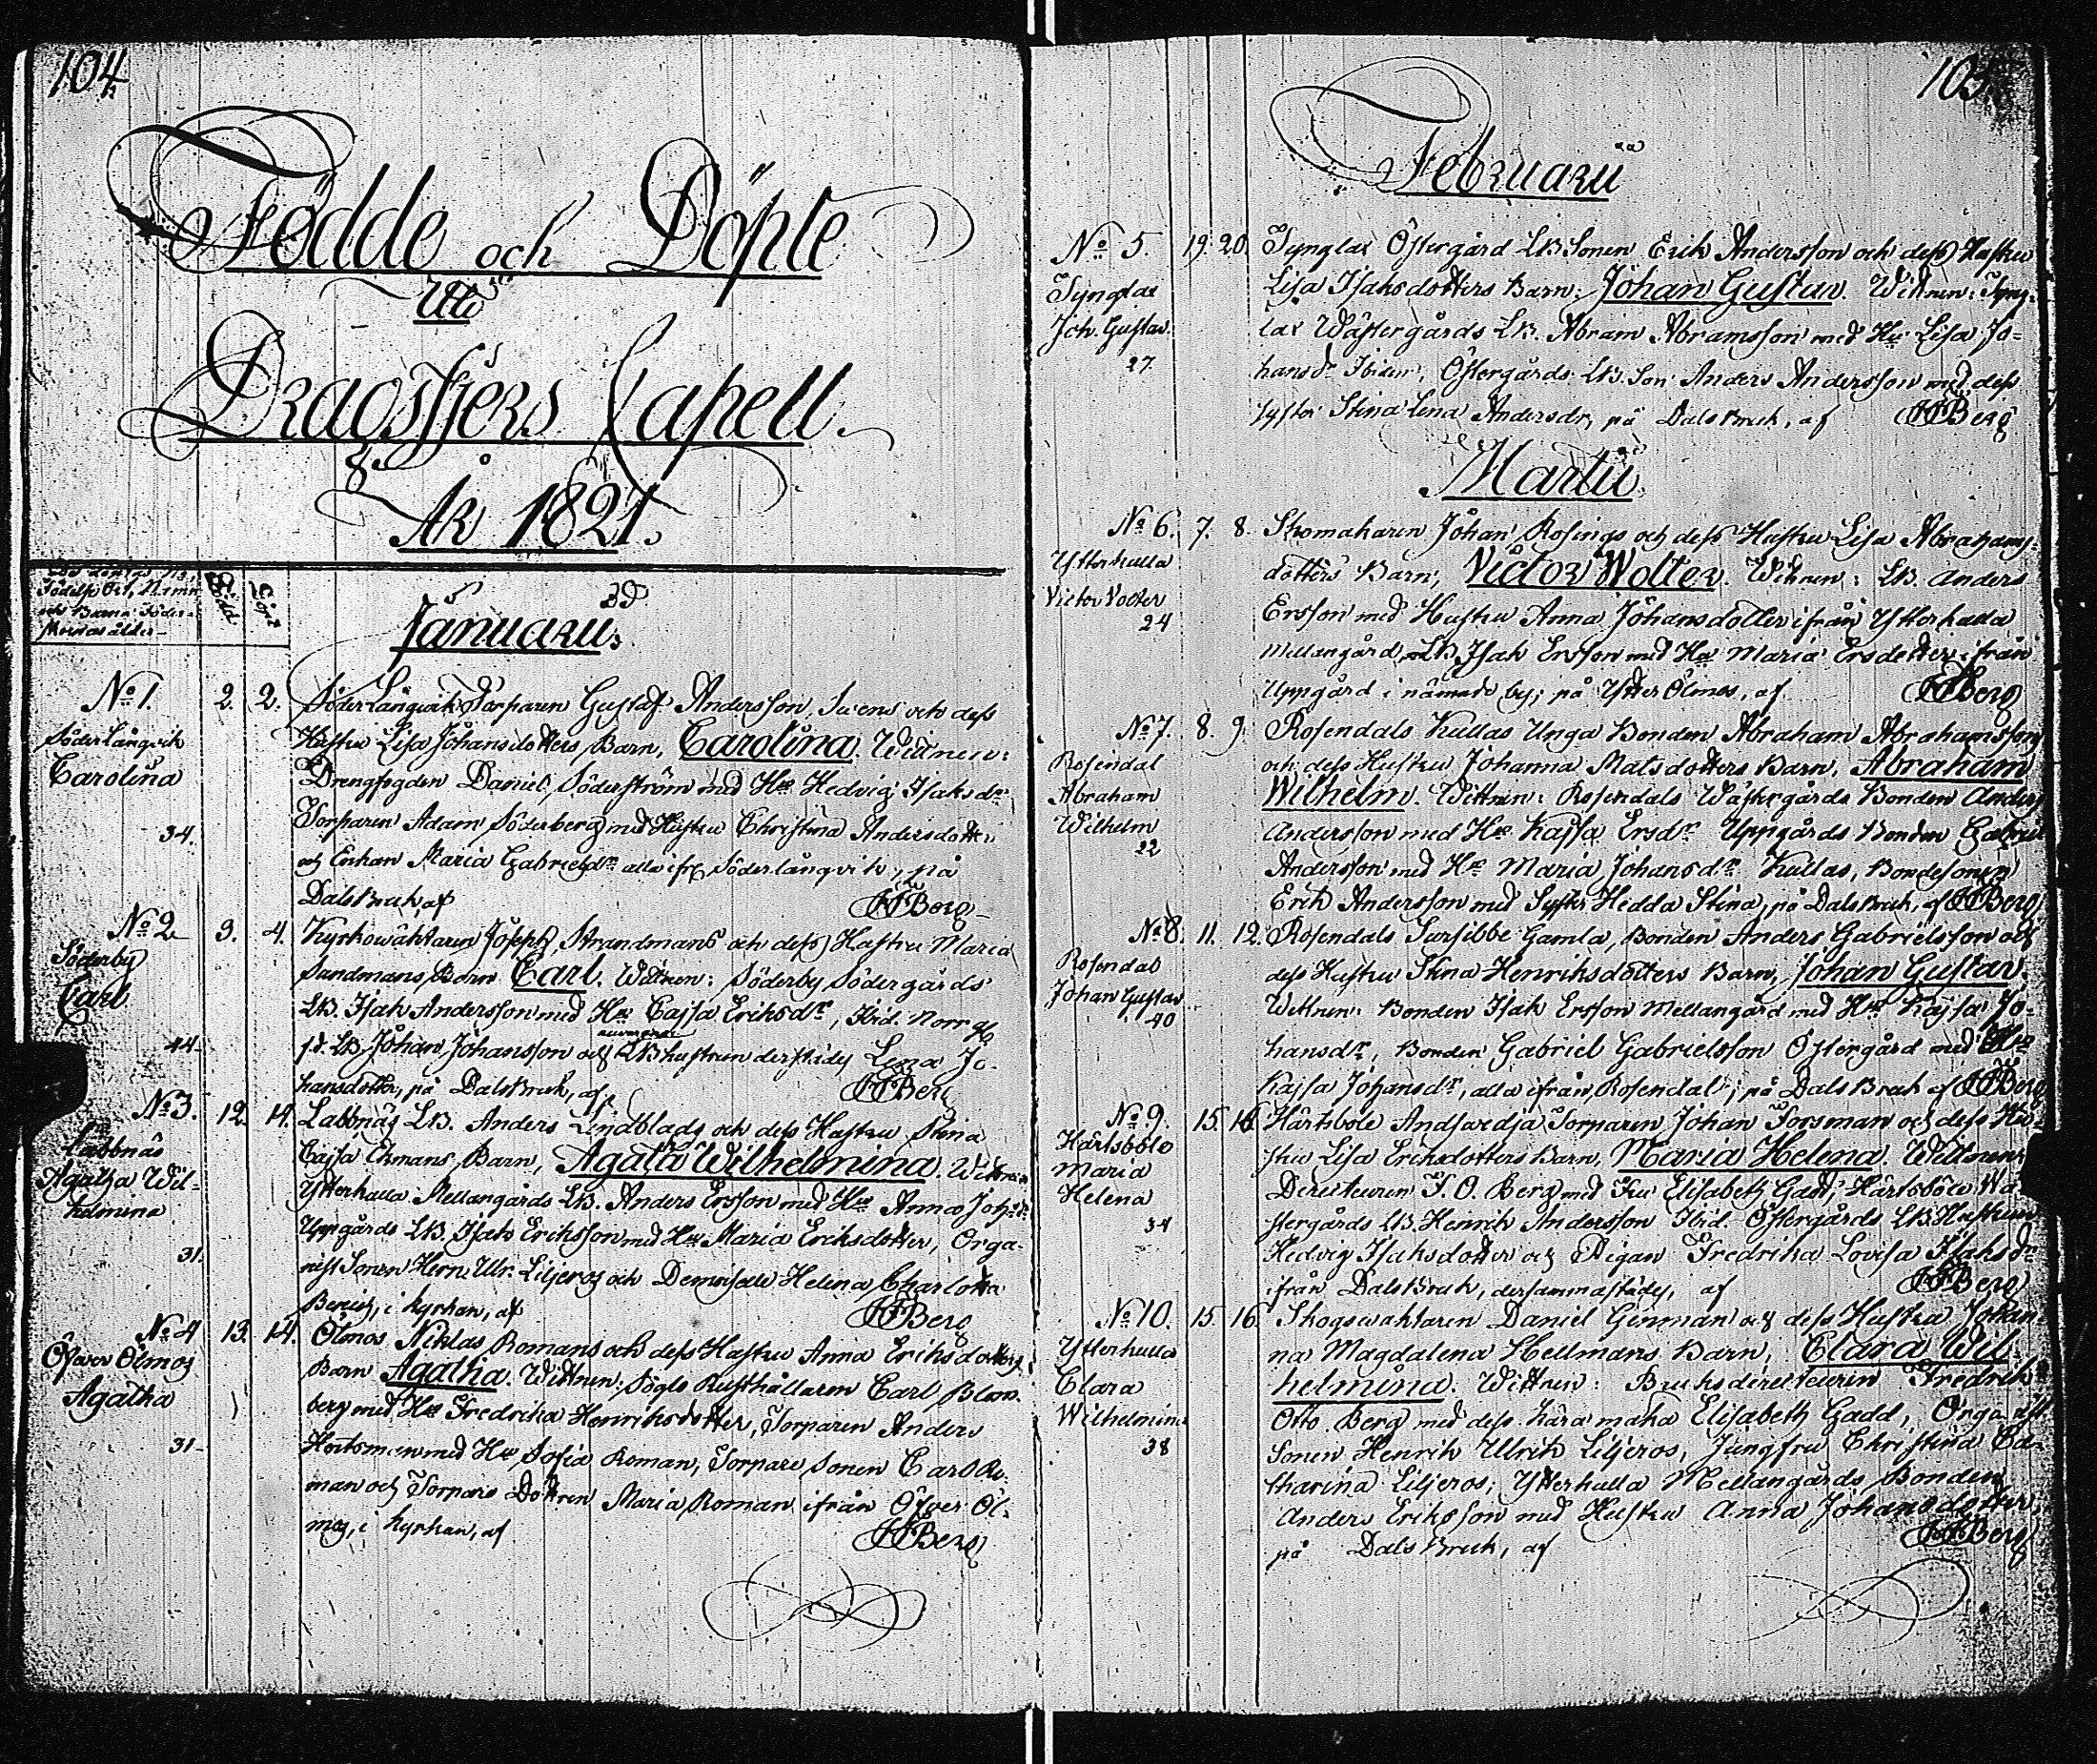 104
Födde och Döpte
Uti
Dragsfjers Capell.
År 1821.
Födelse Ort, Namn
och Barna Föder-
skornas ålder
Född
Döpt
Januarii
No 1. 2. 2. Söder Långvik Torparen Gustaf Andersson, Svens och dess
Söderlångvik
Carolina
34.
Hustru Lisa Johansdotters Barn, Carolina. Wittnen:
Drengfogden Daniel Söderström med Hu Hedvig Isaksdr
Torparen Adam Söderberg med Hustru Christina Andersdotter
och Enkan Maria Gabrielsdr alla ifr. Söderlångvik, på
Dalsbruk, af JFBerg
No 2 3. 4. Kyrkowäktaren Joseph Strandmans och dess Hustru Maria
Söderby
Carl
44
Sundmans Barn Carl. Wittnen: Söderby Södergårds
LB. Isak Andersson med Hu Cajsa Eriksdr, Ibid. Norrg
LB. Johan Johansson och LBhustrun derstädes Lena Jo-
hansdotter, på Dalsbruk, af JFBerg
No 3. 12. 14. Labbnäs LB. Anders Lindblads och dess Hustru Stina
Labbnäs
Agatha Wil-
helmina
31.
Cajsa Ekmans Barn, Agata Wilhelmina. Wittnen
Ytterkulla Mellangårds LB. Anders Ersson med Hu Anna Johsdr
Uppgårds LB. Isak Eriksson med Hu Maria Eriksdotter, Orga-
nist Sonen Herr Ulr. Liljeros och Demoiselle Helena Charlotta
i kyrkan, af JFBerg
No 4 13. 14. Ölmos Niklas Romans och dess Hustru Anna Eriksdotters
Öfwer Ölmos
Agatha
31
Barn Agatha. Wittnen: Sögle Rusthållaren Carl Blom-
berg med Hu Fredrika Henriksdotter, Torparen Anders
Hertsman med Hu Sofia Roman, Torpare Sonen Carl Ro-
man och Torpare Dottren Maria Roman ifrån Öfver Öl-
mos, i kyrkan, af JFBerg
105
Februarii
No 5. 19. 20. Tynglax Östergård LB Sonen Erik Andersson och dess Hustru
Tynglax
Joh. Gustav.
27.
Lisa Isaksdotters Barn: Johan Gustav. Wittnen: Tyng-
lax Wästergårds LB. Abram Abramsson med Hu Lisa Jo-
hansdr Ibidem, Östergårds LB. Son Anders Andersson med dess
syster Stina Lena Andersdr, på Dalsbruk, af JFBerg
Martii
No 6. 7. 8. Skomakaren Johan Rosings och dess Hustru Lisa Abrahams-
Ytterkulla
Victor Volter
24
dotters Barn, Victor Wolter. Wittnen: LB. Anders
Ersson med Hustru Anna Johansdotter ifrån Ytterkulla
Mellangård, LB. Isak Ersson med Hu Maria Ersdotter ifrån
Uppgård i nämnde by; på Ytter Ölmos, af JFBerg
No 7. 8. 9. Rosendals Kullas Unga Bonden Abraham Abrahamssons
Rosendal
Abraham
Wilhelm
22
och dess Hustru Johanna Matsdotters Barn, Abraham
Wilhelm. Wittnen: Rosendals Wästergårds Bonden Anders
Andersson med Hu Kajsa Ersdr Uppgårds Bonden Gabriel
Andersson med Hu Maria Johansdr Kullas, Bondesonen
Erik Andersson med Syster Hedda Stina, på Dalsbruk, af JFBerg
No 8. 11. 12. Rosendals Sursibbe Gamla, Bonden Anders Gabrielsson och
Rosendal
Johan Gustav
40
dess Hustru Stina Henriksdotters Barn, Johan Gustav.
Wittnen: Bonden Isak Ersson Mellangård med Hu Kajsa Jo-
hansdr, Bonden Gabriel Gabrielsson Östergård med Hu
Kajsa Johansdr, alla ifrån Rosendal; på Dalsbruk af JFBerg
No 9. 15. 16. Hårtsböle Andjaredja Torparen Johan Torsman och dess Hu-
Hårtsböle
Maria
Helena
34
stru Lisa Eriksdotters Barn, Maria Helena. Wittnen:
Directeuren F. O. Berg med Fru Elisabeth Gadd, Hårtsböle Wä-
stergårds LB. Henrik Andersson Ibid. Östergårds LB. Hustrun
Hedvig Isaksdotter och Pigan Fredrika Lovisa Isaksdr
ifrån Dalsbruk, dersammastädes, af JFBerg
No 10. 15. 16. Skogswaktaren Daniel Genman och dess Hustru Johan-
Ytterkulla
Clara
Wilhelmina
38
na Magdalena Hellmans Barn, Clara Wil-
helmina. Wittnen: Bruksdirecteuren Fredrik
Otto Berg med dess kära maka Elisabeth Gadd, Organist
Sonen Henrik Ulrik Liljeros, Jungfru Christina Ca-
tharina Liljeros; Ytterkulla Mellangårds Bonden
Anders Eriksson med Hustru Anna Johansdotter
på Dalsbruk, af JFBerg